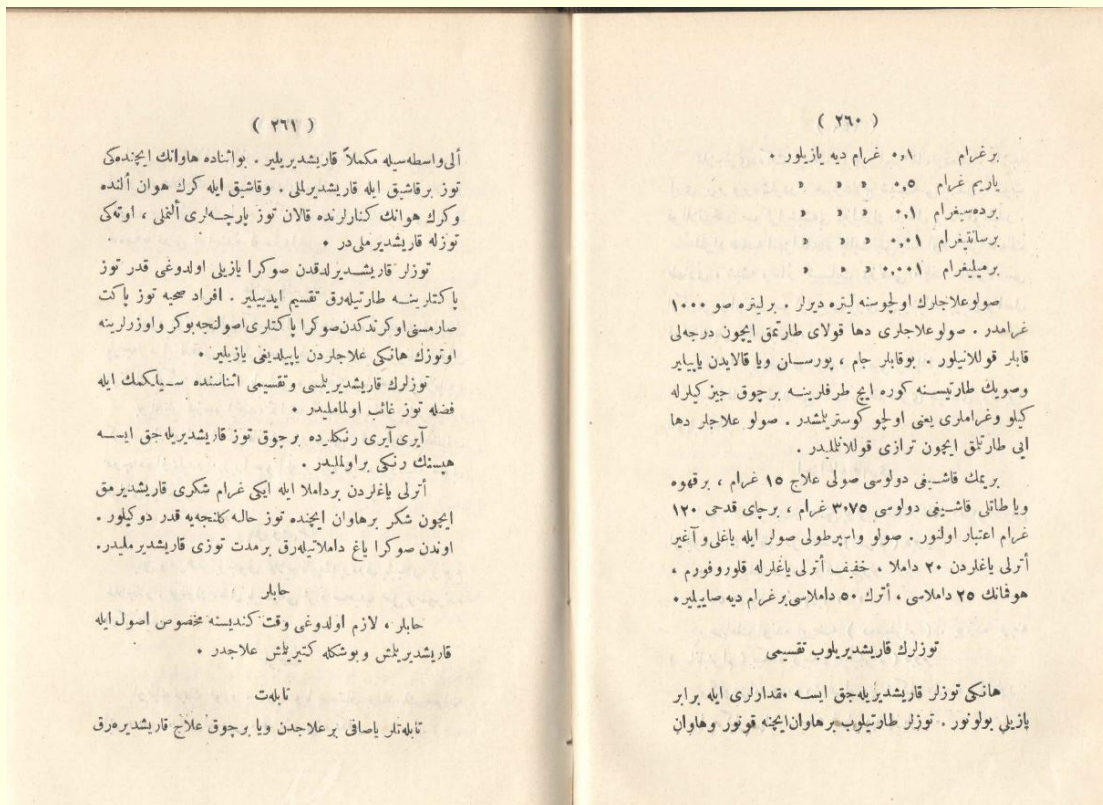 ( ٢٦٠ )
برغرام ٠٫١ غرام ديه يازيلور .
ياريم غرام ٠٫٥ » » »
بردەسيغرام ٠٫١ » » »
برسانتيغرام ٠٫٠١ » » »
برميليغرام ٠٫٠٠١ » » »
صولوعلاجلرك اولچوسنه ليتره ديرلر . برليتره صو ١٠٠٠
غرامدر . صولوعلاجلرى دها قولاى طارتمق ايچون درجه‌لى
قابلر قوللانيلور . بوقابلر جام ، پورسلان ويا قالايدن ياپيلير
وصويك طارتيسنه كوره ايچ طرفلرينه برچوق چيزكيلرله
كيلو وغراملرى يعنى اولچو كوسترلمشدر . صولو علاجلر دها
ايى طارتلمق ايچون ترازى قوللانلمليدر .
بريمك قاشيغى دولوسى صولى علاج ١٥ غرام ، برقهوه
ويا طاتلى قاشيغى دولوسى ٣٠٧٥ غرام ، برچاى قدحى ١٢٠
غرام اعتبار اولنور . صولو واسپرطولى صولر ايله ياغلى وآغير
أترلى ياغلردن ٢٠ داملا ، خفيف أترلى ياغلرله قلوروفورم ،
هوفمانك ٢٥ داملاسى ، أترك ٥٠ داملاسى برغرام ديه صاييلير.
توزلرك قاريشديريلوب تقسيمى
هانكى توزلر قاريشديريله‌جق ايسه مقدارلرى ايله برابر
يازيلى بولونور . توزلر طارتيلوب برهاوان ايچنه قونور وهاوان
( ٢٦١ )
ألى واسطه‌سيله مكملاً قاريشديريلير . بواثناده هاوانك ايچنده‌كى
توز برقاشيق ايله قاريشديرلملى . وقاشيق ايله كرك هوان ألنده
وكرك هوانك كنارلرنده قالان توز پارچه‌لرى ألنملى ، اوته‌كى
توزله قاريشديرملى‌در .
توزلر قاريشديرلدقدن صوكرا يازيلى اولدوغى قدر توز
پاكتلرينه طارتيله‌رق تقسيم ايديلير . افراد صحيه توز پاكت
صارمسنى اوكرندكدن صوكرا پاكتلرى اصولنجه بوكر و اوزرلرينه
او توزك هانكى علاجلردن ياپيلديغى يازيلير .
توزلرك قاريشديريلمسى وتقسيمى اثناسنده سيلكمك ايله
فضله توز غائب اولماملیدر .
آيرى آيرى رنكلرده برچوق توز قاريشديريله‌جق ايسه
هپسنك رنكى براولمليدر .
أترلى ياغلردن برداملا ايله ايكى غرام شكرى قاريشديرمق
ايچون شكر برهاوان ايچنده توز حاله كلنجه‌يه قدر دوكيلور .
اوندن صوكرا ياغ داملاتيله‌رق برمدت توزى قاريشديرمليدر.
حابلر
حابلر ، لازم اولدوغى وقت كنديسنه مخصوص اصول ايله
قاريشديريلمش وبوشكله كتيريلمش علاجدر .
تابله‌ت
تابله‌تلر ياصاقى برعلاجدن ويا برچوق علاج قاريشديره‌رق